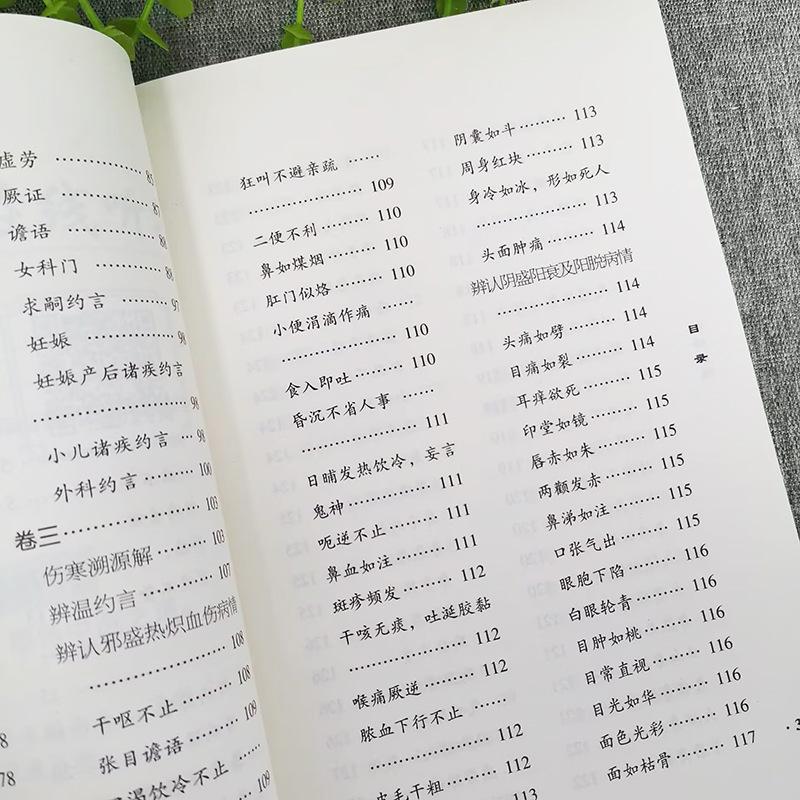 虚劳 ……… 85
厥证 ……… 87
谵语 ……… 88
女科门 ……… 88
求嗣约言 ……… 97
妊娠 ……… 98
妊娠产后诸疾约言
……… 98
小儿诸疾约言 … 98
外科约言 ……… 100
卷三 ……… 103
伤寒溯源解 ……… 103
辨温约言 ……… 107
辨认邪盛热炽血伤病情
……… 108
干呕不止 ……… 108
张目谵语 ……… 109
渴饮冷不止 … 109
8
78
狂叫不避亲疏 ……
……… 109
二便不利 ……… 110
鼻如煤烟 ……… 110
肛门似烙 ……… 110
小便涓滴作痛
……… 110
食入即吐 ……… 110
昏沉不省人事 ……
……… 111
日晡发热饮冷，妄言
鬼神 ……… 111
呃逆不止 ……… 111
鼻血如注 ……… 111
斑疹频发 ……… 112
干咳无痰，吐涎胶黏
……… 112
喉痛厥逆 ……… 112
脓血下行不止 ……
……… 112
皮毛干粗 ……… 112
113
阴囊如斗 ……… 113
周身红块 ……… 113
身冷如冰，形如死人
……… 113
头面肿痛 ……… 114
辨认阴盛阳衰及阳脱病情
……… 114
头痛如劈 ……… 114
目痛如裂 ……… 114
耳痒欲死 ……… 115
印堂如镜 ……… 115
唇赤如朱 ……… 115
两颧发赤 ……… 115
鼻涕如注 ……… 115
口张气出 ……… 115
眼胞下陷 ……… 116
白眼轮青 ……… 116
目肿如桃 ……… 116
目常直视 ……… 116
目光如华 ……… 116
面色光彩 ……… 116
面如枯骨 ……… 117
目录
· 3